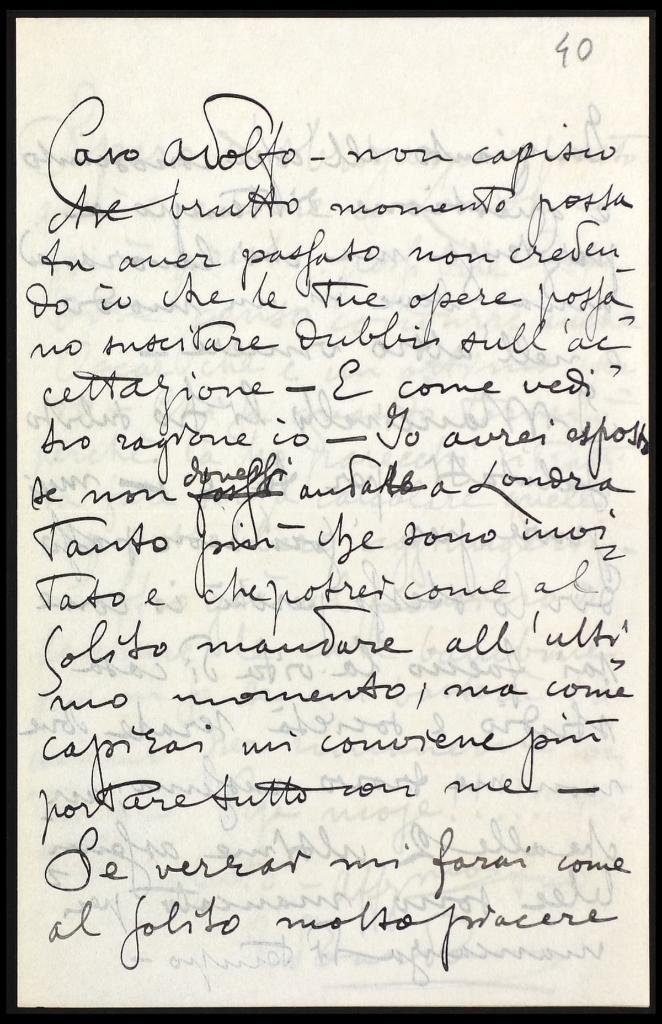 40
Caro Adolfo - non capisco
che brutto momento possa
tu aver passato non creden-
do io che le tue opere possa-
no suscitare dubbii sull'ac-
cettazione - E come vedi
ho ragione io - Io avrei esposto
se non dovessi andare a Londra
tanto più che sono invi-
tato e che potrei come al
solito mandare all'ulti-
mo momento, ma come
capirai mi conviene più
portare tutto con me -
Se verrai mi farai come
al solito molto piacere